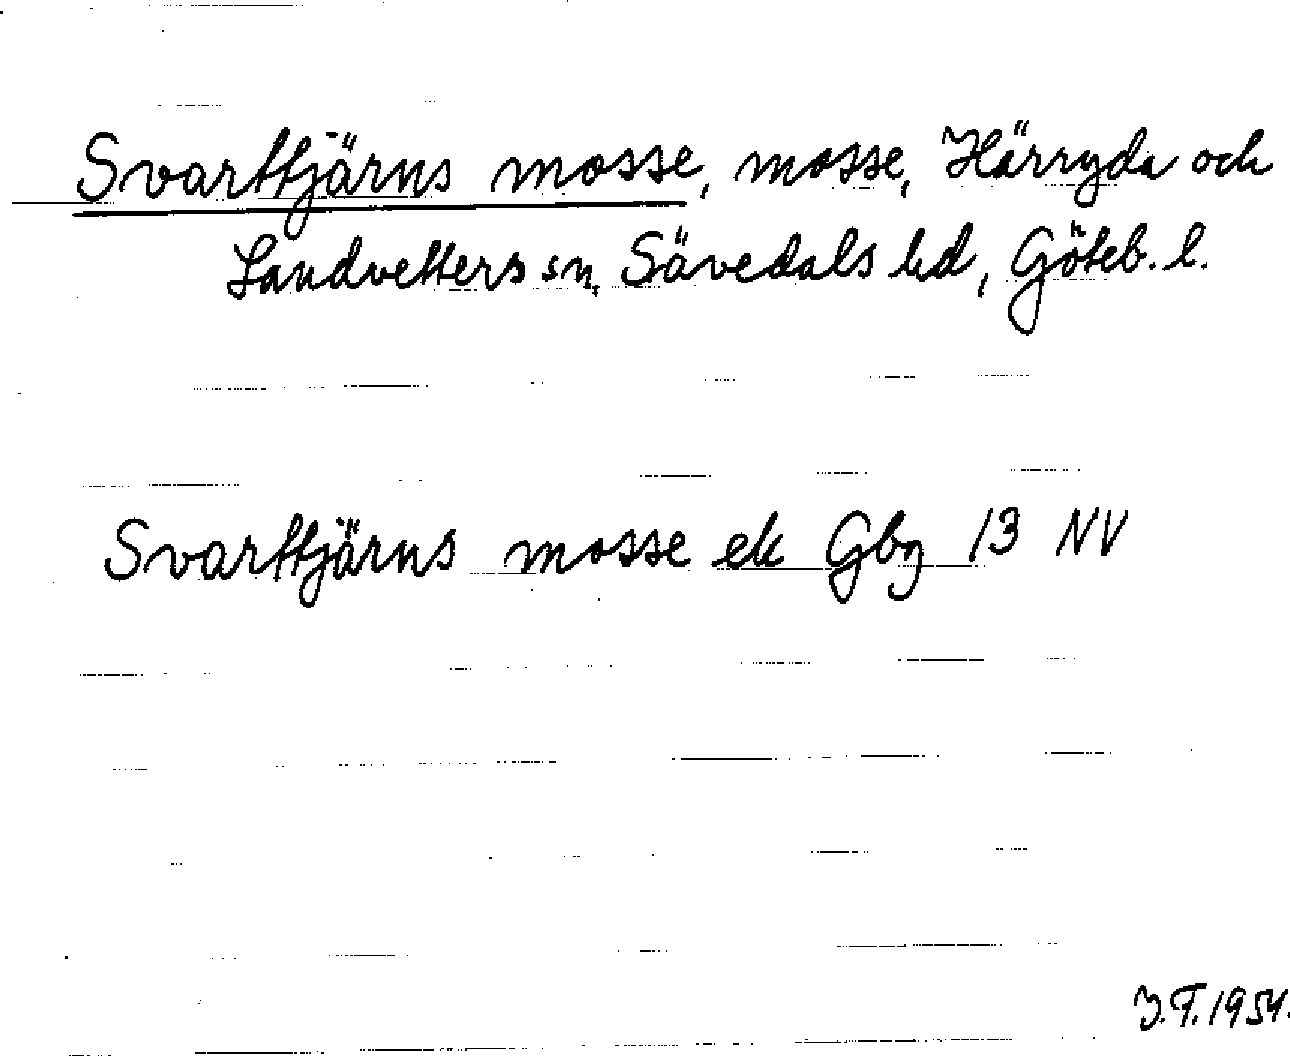 Svarttjärns mosse, mosse, Härryda och
Landvetters sn, Sävedals hd, Göteb. l.
Svarttjärns mosse ek Gbg 13 NV
J.T. 1954.